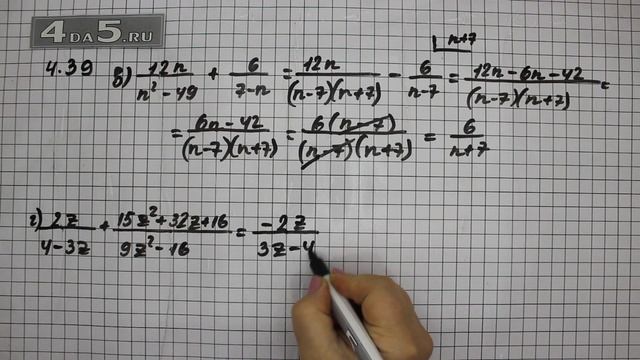 4DA5.RU
n+7
4.39 в) 12n/(n² − 49) + 6/(7−n) = 12n/((n−7)(n+7)) − 6/(n−7) = (12n − 6n − 42)/((n−7)(n+7)) =
= (6n − 42)/((n−7)(n+7)) = 6(n−7)/((n−7)(n+7)) = 6/(n+7)
г) 2z/(4−3z) + (15z²+32z+16)/(9z²−16) = −2z/(3z−4)